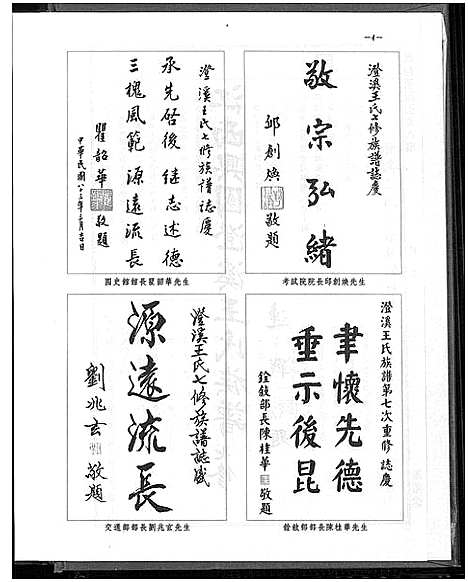 —4—
澄溪王氏七修族譜誌慶
敬宗弘緒
邱創煥
敬題
考試院院長邱創煥先生
澄溪王氏七修族譜誌慶
承先啓後 继志述德
三槐風範 源遠流長
瞿韶華
敬題
中華民國八十三年三月吉日
國史館館長瞿韶華先生
澄溪王氏族譜第七次重修誌慶
聿懷先德
垂示後昆
銓敘部長陳桂華
敬題
銓敘部部長陳桂華先生
澄溪王氏七修族譜誌盛
源遠流長
劉兆玄
敬題
交通部部長劉兆玄先生